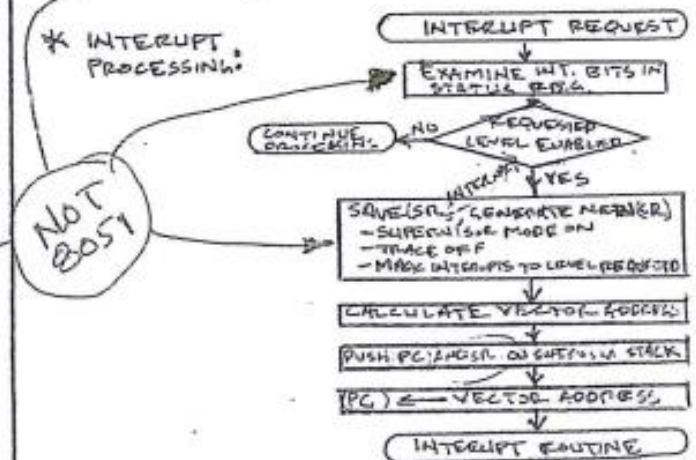 * INTERUPT
PROCESSING:
INTERUPT REQUEST
EXAMINE INT. BITS IN
STATUS REG.
REQUESTED
LEVEL ENABLED
NO
CONTINUE
PROCESSING
YES
INTERUPT
NOT
BUSY
SAVE(SR), GENERATE NEW(SR)
- SUPERVISOR MODE ON
- TRACE OFF
- MASK INTERUPTS TO LEVEL REQUESTED
CALCULATE VECTOR ADDRESS
PUSH PC AND SR ON SUPERVISOR STACK
(PC) ← VECTOR ADDRESS
INTERUPT ROUTINE